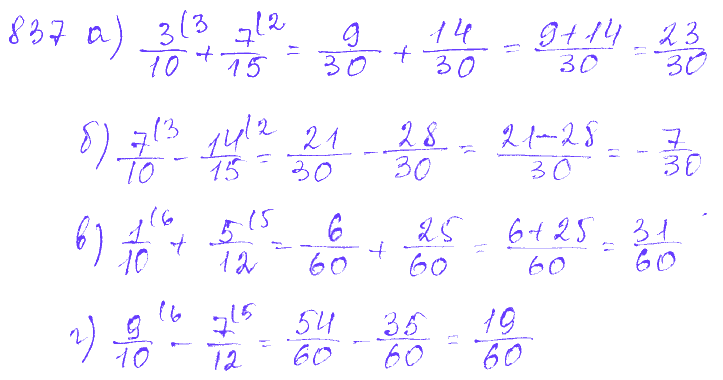 837 а) 3/10 (3 + 7/15 (2 = 9/30 + 14/30 = 9+14/30 = 23/30
б) 7/10 (3 - 14/15 (2 = 21/30 - 28/30 = 21-28/30 = - 7/30
в) 1/10 (6 + 5/12 (5 = 6/60 + 25/60 = 6+25/60 = 31/60
г) 9/10 (6 - 7/12 (5 = 54/60 - 35/60 = 19/60